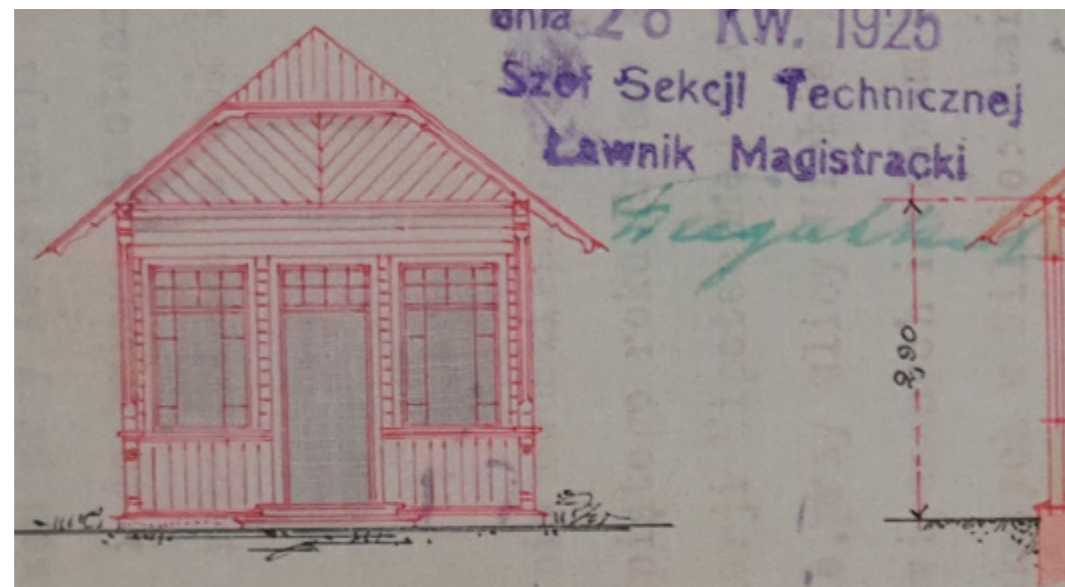 dnia 28 KW. 1925
Szef Sekcji Technicznej
Ławnik Magistracki
2,90